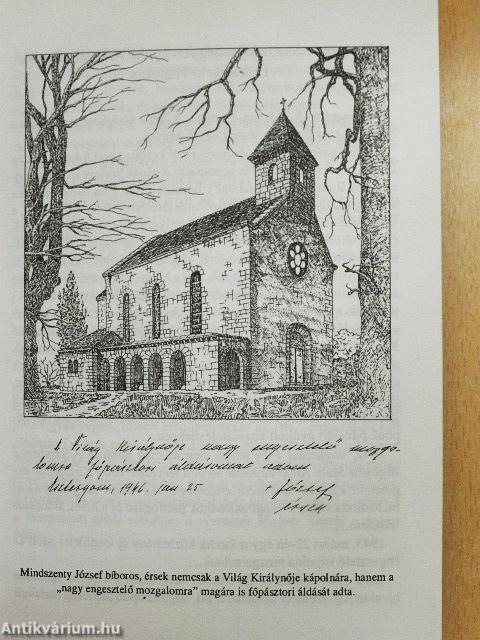 A Világ Királynője nagy engesztelő mozga-
lomra főpásztori áldásomat adom
Esztergom, 1946. jan 25 + József
érsek
Mindszenty József bíboros, érsek nemcsak a Világ Királynője kápolnára, hanem a
„nagy engesztelő mozgalomra” magára is főpásztori áldását adta.
Antikvárium.hu